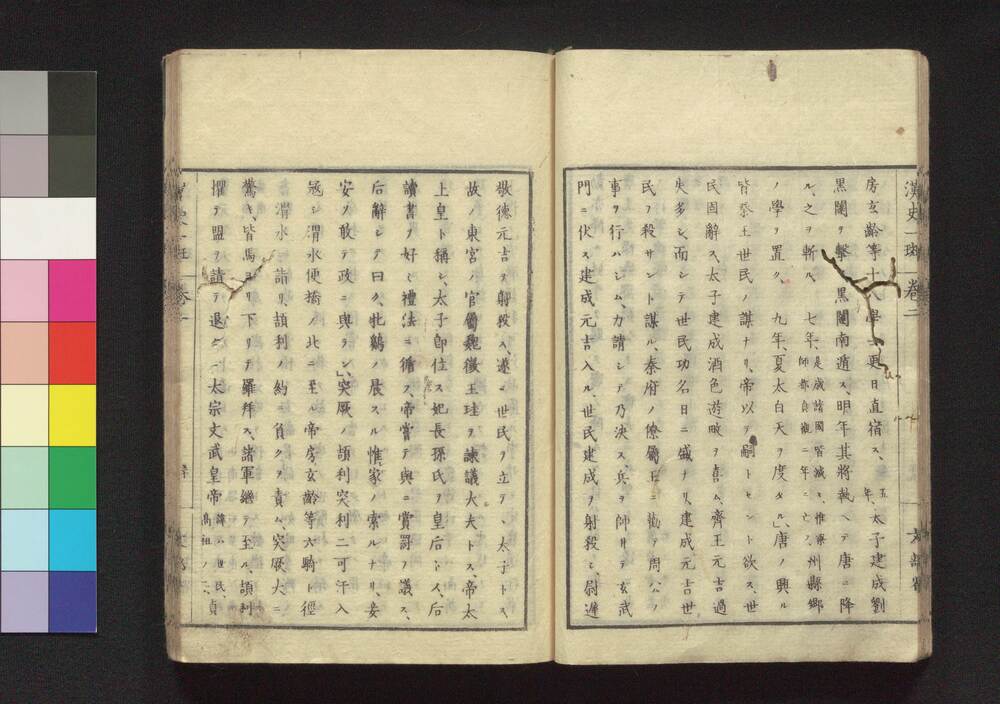 漢史一班 卷二
文部省
房玄齡等十八學士更日直宿ス、五年、太子建成劉
黒闥ヲ撃ツ黒闥南遁ス、明年其將執ヘテ唐ニ降
ル、之ヲ斬ル 七年、是歳諸國皆滅シ、惟梁師都貞觀二年ニ亡フ、州縣鄉
ノ學ヲ置ク、 九年、夏太白天ヲ度タル、唐ノ興ル
皆秦王世民ノ謀ナリ、帝以テ嗣トセント欲ス、世
民固辭ス、太子建成酒色遊畋ヲ喜ム、齊王元吉過
失多シ、而シテ世民功名日ニ盛ナリ、建成元吉世
民ヲ殺サント謀ル、秦府ノ僚屬王ニ勸テ周公ノ
事ヲ行ハシム、力請シテ乃決ス、兵ヲ帥井テ玄武
門ニ伏ス建成元吉入ル、世民建成ヲ射殺シ、尉遲
敬德元吉ヲ射殺ス、遂ニ世民ヲ立テ、太子トス、
故ノ東宮ノ官屬魏徵王珪ヲ諫議大夫トス帝太
上皇ト稱シ、太子卽位ス妃長孫氏ヲ皇后トス、后
讀書ヲ好ミ禮法ニ循ス、帝嘗テ與ニ賞罰ヲ議ス、
后辭シテ曰ク、牝鷄ノ晨スルハ惟家ノ索ルナリ、妾
安ソ敢テ政ニ與ラン」突厥ノ頡利突利二可汗入
冦シ渭水便橋ノ北ニ至ル帝房玄齡等六騎ト徑
渭水ニ詣リ、頡利ノ約ニ負クヲ責ム、突厥大ニ
驚キ、皆馬ヨリ下リテ羅拜ス、諸軍繼テ至ル、頡利
懼テ盟ヲ請テ退ク」太宗文武皇帝 諱ハ世民、高祖ノ二子、貞